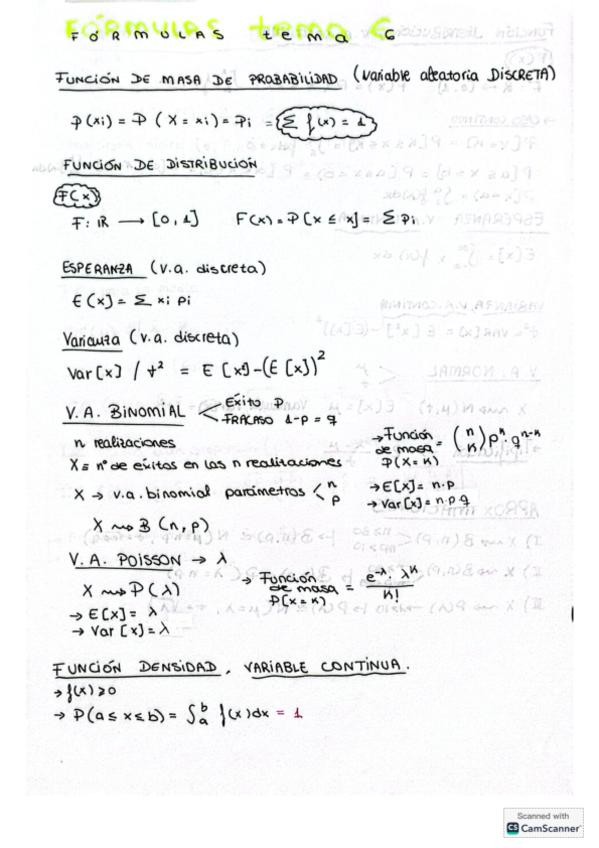 FÓRMULAS tema 6
FUNCIÓN DE MASA DE PROBABILIDAD (variable aleatoria DISCRETA)
P(xi) = P (X = xi) = Pi = Σ f(x) = 1
FUNCIÓN DE DISTRIBUCIÓN
F(x)
F: IR → [0,1] F(x) = P[X ≤ x] = Σ Pi
ESPERANZA (v.a. discreta)
E(x) = Σ xi pi
Varianza (v.a. discreta)
Var[x] / τ² = E[x] - (E[x])²
V.A. BINOMIAL < Éxito P
FRACASO 1-P = q
n realizaciones
X ≡ nº de éxitos en las n realizaciones
X → v.a. binomial parámetros < n
p
X ⇝ B (n, p)
→ Función de masa P(X = K) = (n K) p^K · q^n-K
→ E[x] = n·p
→ Var[x] = n·p·q
V.A. POISSON → λ
X ⇝ P(λ)
→ E[x] = λ
→ Var[x] = λ
→ Función de masa P[X = K] = e^-λ · λ^K / K!
FUNCIÓN DENSIDAD, VARIABLE CONTINUA.
→ f(x) ≥ 0
→ P(a ≤ x ≤ b) = ∫ₐᵇ f(x)dx = 1
Scanned with
CS CamScanner